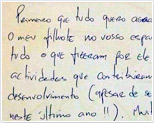 Primeiro que tudo quero
O meu filhote no vosso
tudo o que fizeram por ele
actividades que contribuiram
desenvolvimento (apesar de
neste último ano!!). Mui